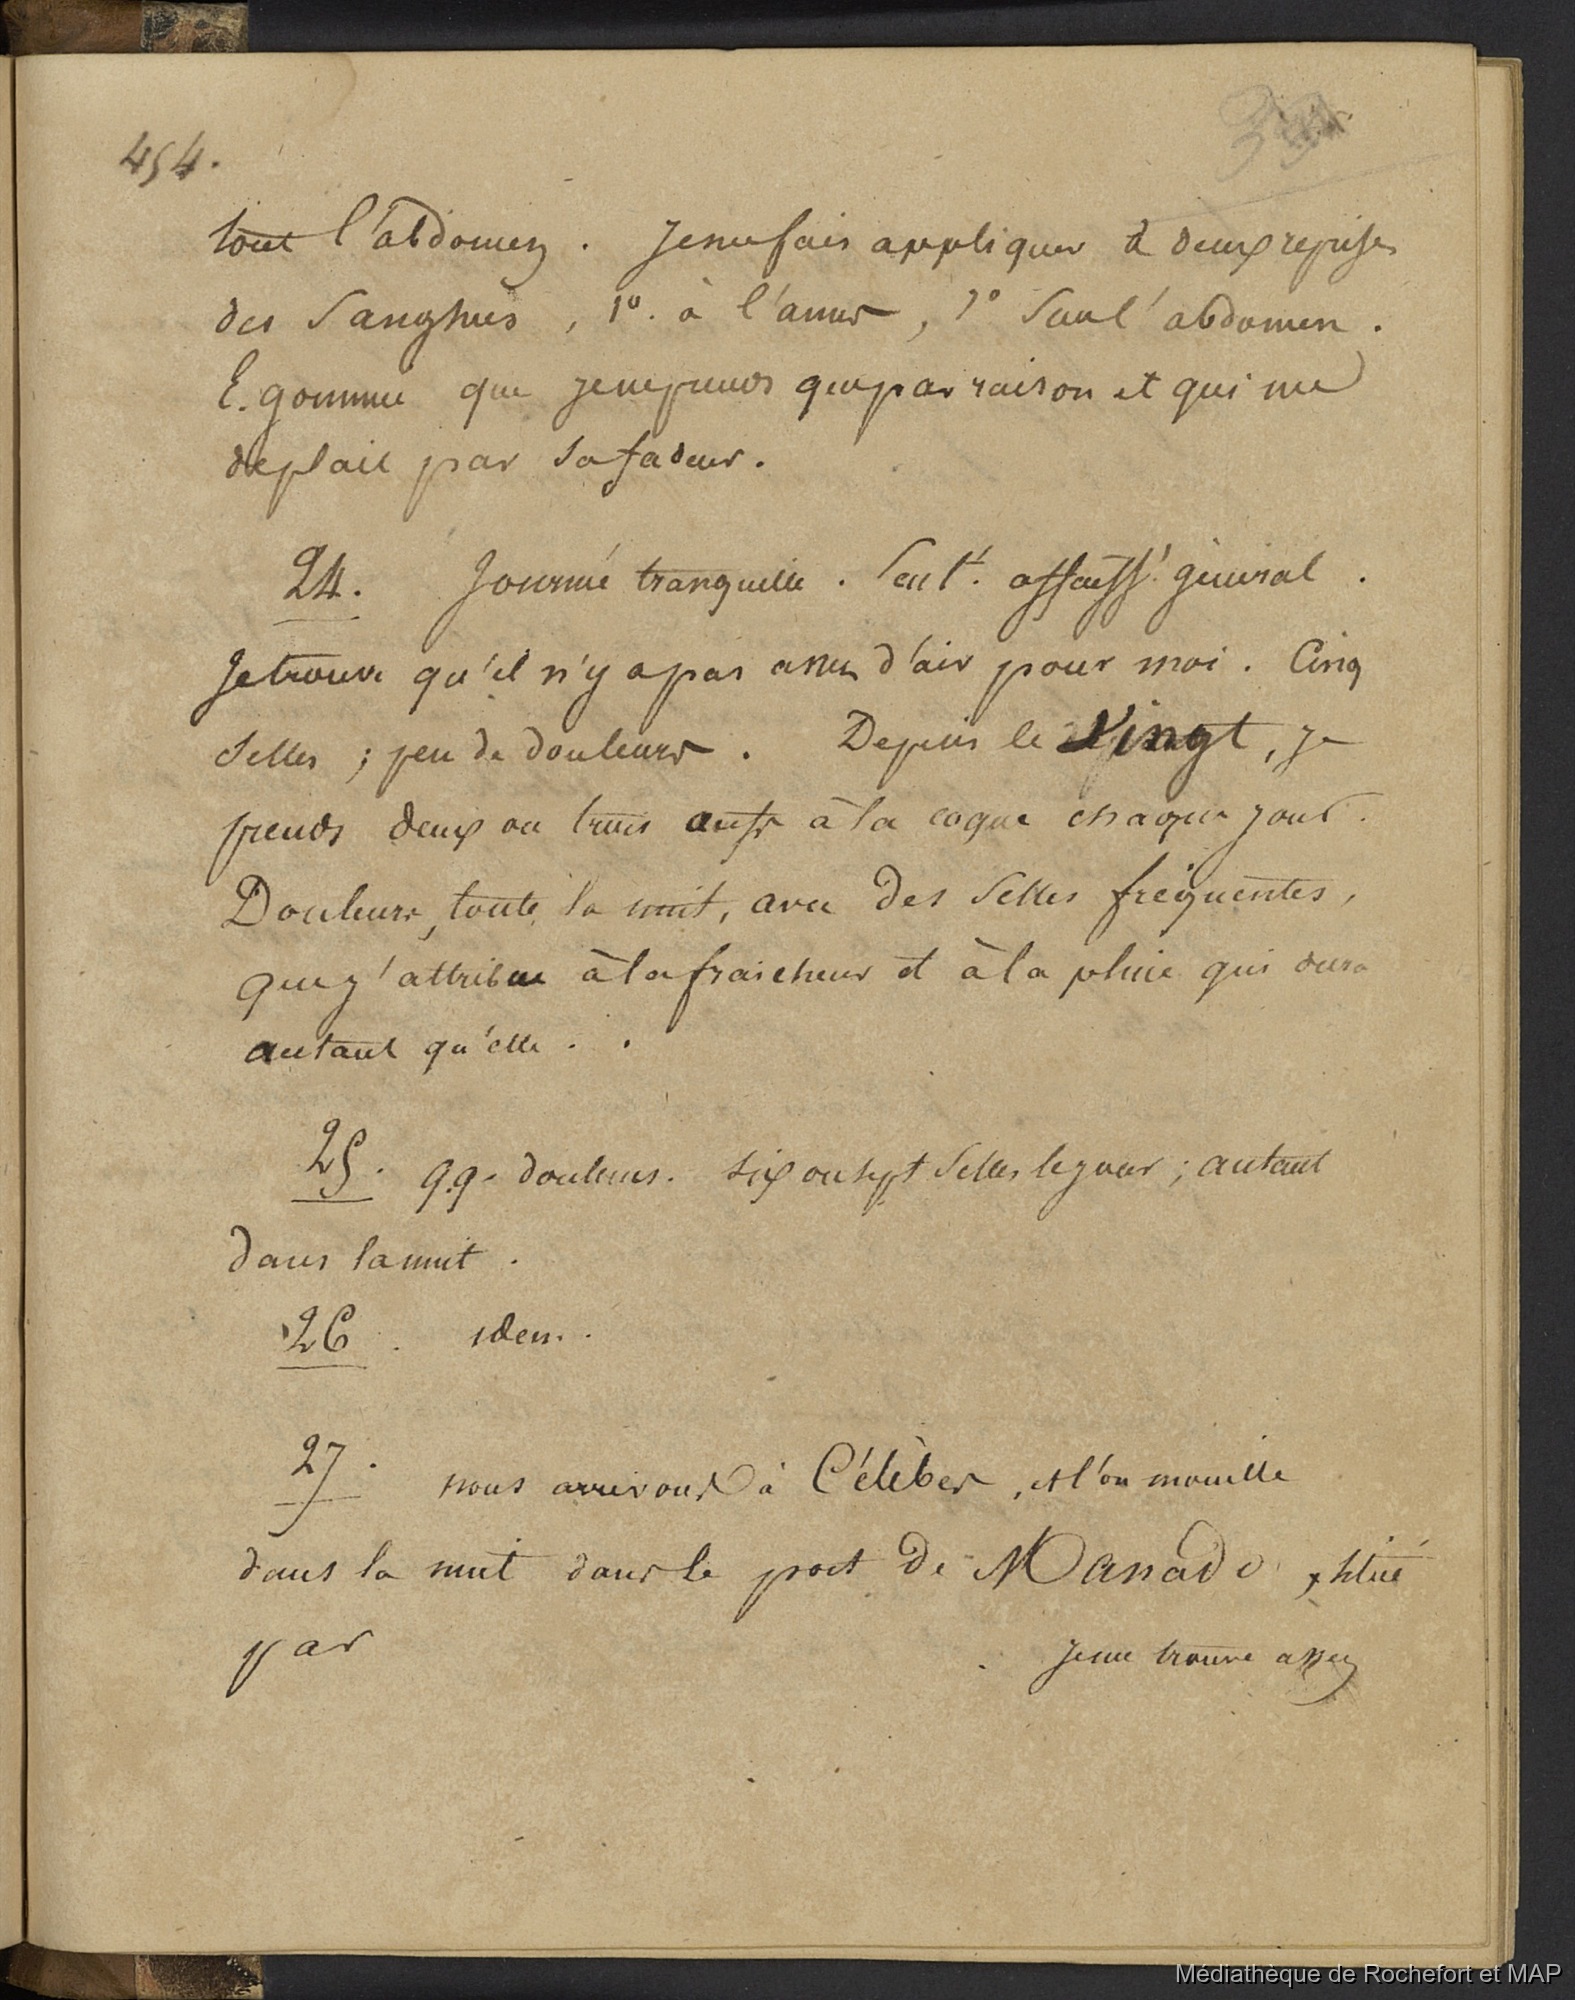 454.
tout l'abdomen. Je me fais appliquer à deux reprises
des Sangsues, 1°. à l'anus, 2° Sur l'abdomen.
E. gommée que je ne prends que par raison et qui me
deplait par sa fadeur.
24. Journée tranquille. Sent.t affaiss.t général.
Je trouve qu'il n'y a pas assez d'air pour moi. Cinq
selles ; peu de douleurs. Depuis le Vingt, je
prends deux ou trois œufs à la coque chaque jour.
Douleurs, toute la nuit, avec des selles fréquentes,
que j'attribue à la fraicheur et à la pluie qui dura
autant qu'elle..
25. q.q. douleurs. six ou sept selles le jour ; autant
dans la nuit.
26. idem.
27. nous arrivons à Célèbes, et l'on mouille
dans la nuit dans le port de Manado, situé
par . Je me trouve assez
Médiathèque de Rochefort et MAP